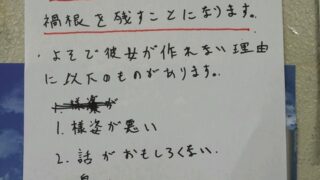 禍根を残すことになります。
・よそで彼女が作れない理由
に以下のものがあります。
1. 様姿が悪い
2. 話がおもしろくない.